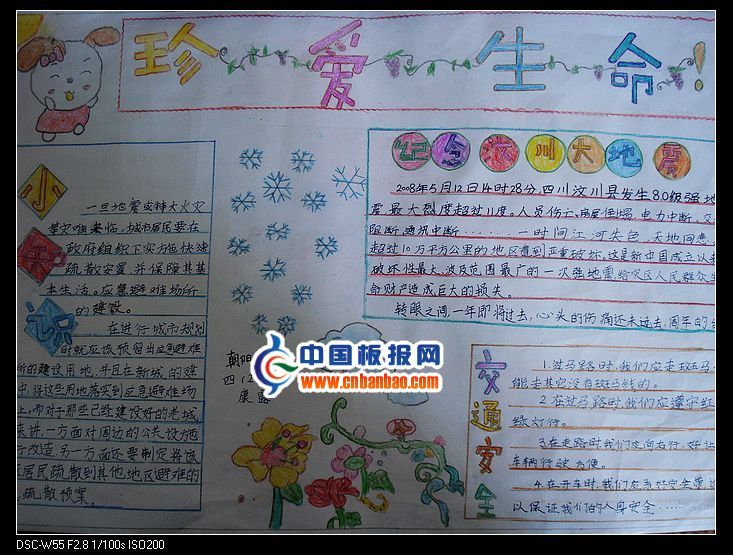 珍爱生命!
纪念汶川大地震
2008年5月12日14时28分,四川汶川县发生8.0级强地
震,最大烈度超过11度。人员伤亡,房屋倒塌,电力中断、交
阻断、通讯中断……一时间江河失色,天地同悲,
超过10万平方公里的地区遭到严重破坏。这是新中国成立以来
破坏性最大、波及范围最广的一次强地震,给灾区人民群众生
命财产造成巨大的损失。
转眼之间,一年即将过去,心头的伤痛还未过去,周年的
小知识
一旦地震或特大火灾
等灾难来临,城市居民要在
政府组织下实施快速
疏散安置,并保障其基
本生活。应急避难场所
的建设。
在进行城市规划
时就应该预留出应急避难
所的建设用地,并且在新城的建
中,将这些用地落实到应急避难场
上。而对于那些已经建设好的老城
来讲,一方面对周边的公共设施
行改造,另一方面还要制定将该
区居民疏散到其他地区避难的
疏散预案。
朝阳
四(2
康露
中国板报网
www.cnbanbao.com
交通安全
1.过马路时,我们应走斑马
能去其它没有斑马线的。
2.在过马路时我们应遵守红
绿灯行。
3.在走路时我们应向右行,好让
车辆行驶方便。
4.在开车时,我们应系好安全带,
以保证我们的人身安全……
DSC-W55 F2.8 1/100s ISO200